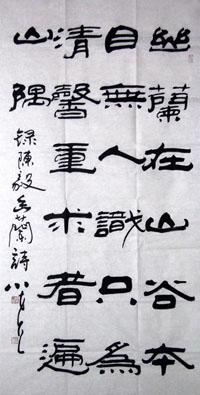 幽蘭在山谷本
自無人識只為
清馨重求者遍
山隅
錄陳毅幽蘭詩